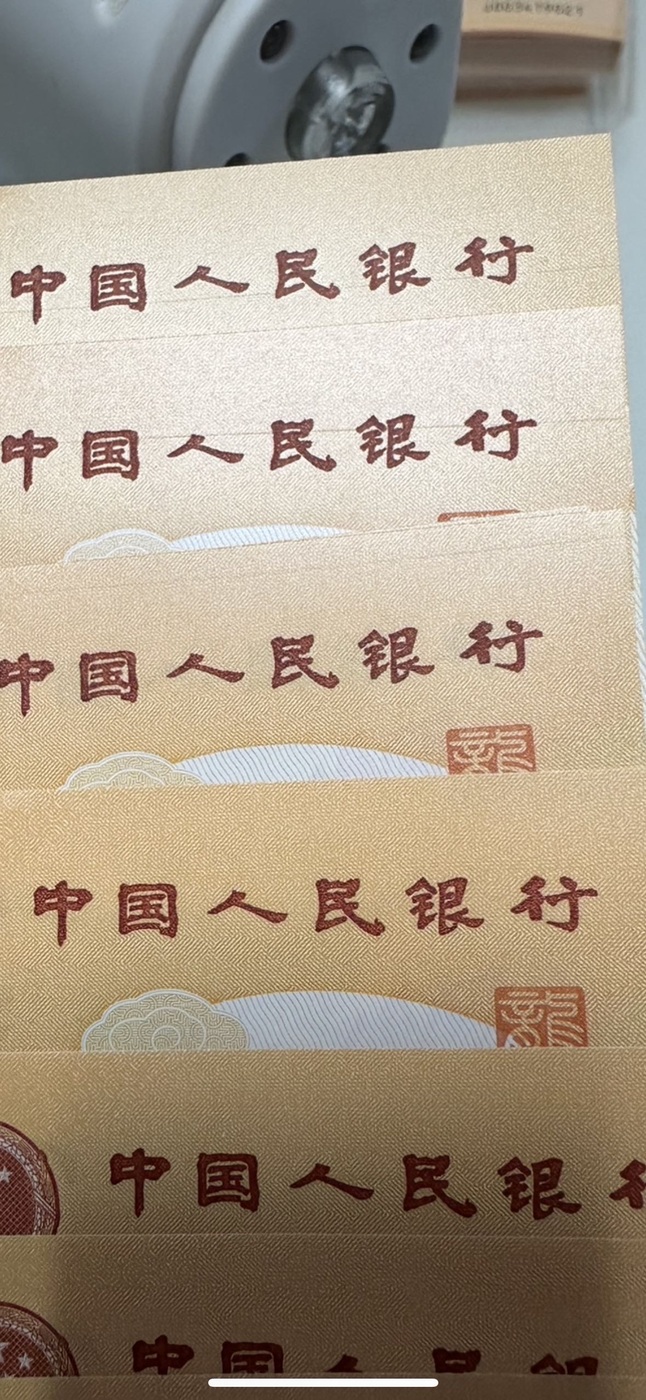 中国人民银行
中国人民银行
中国人民银行
龍
中国人民银行
龍
中国人民银
中国人民银